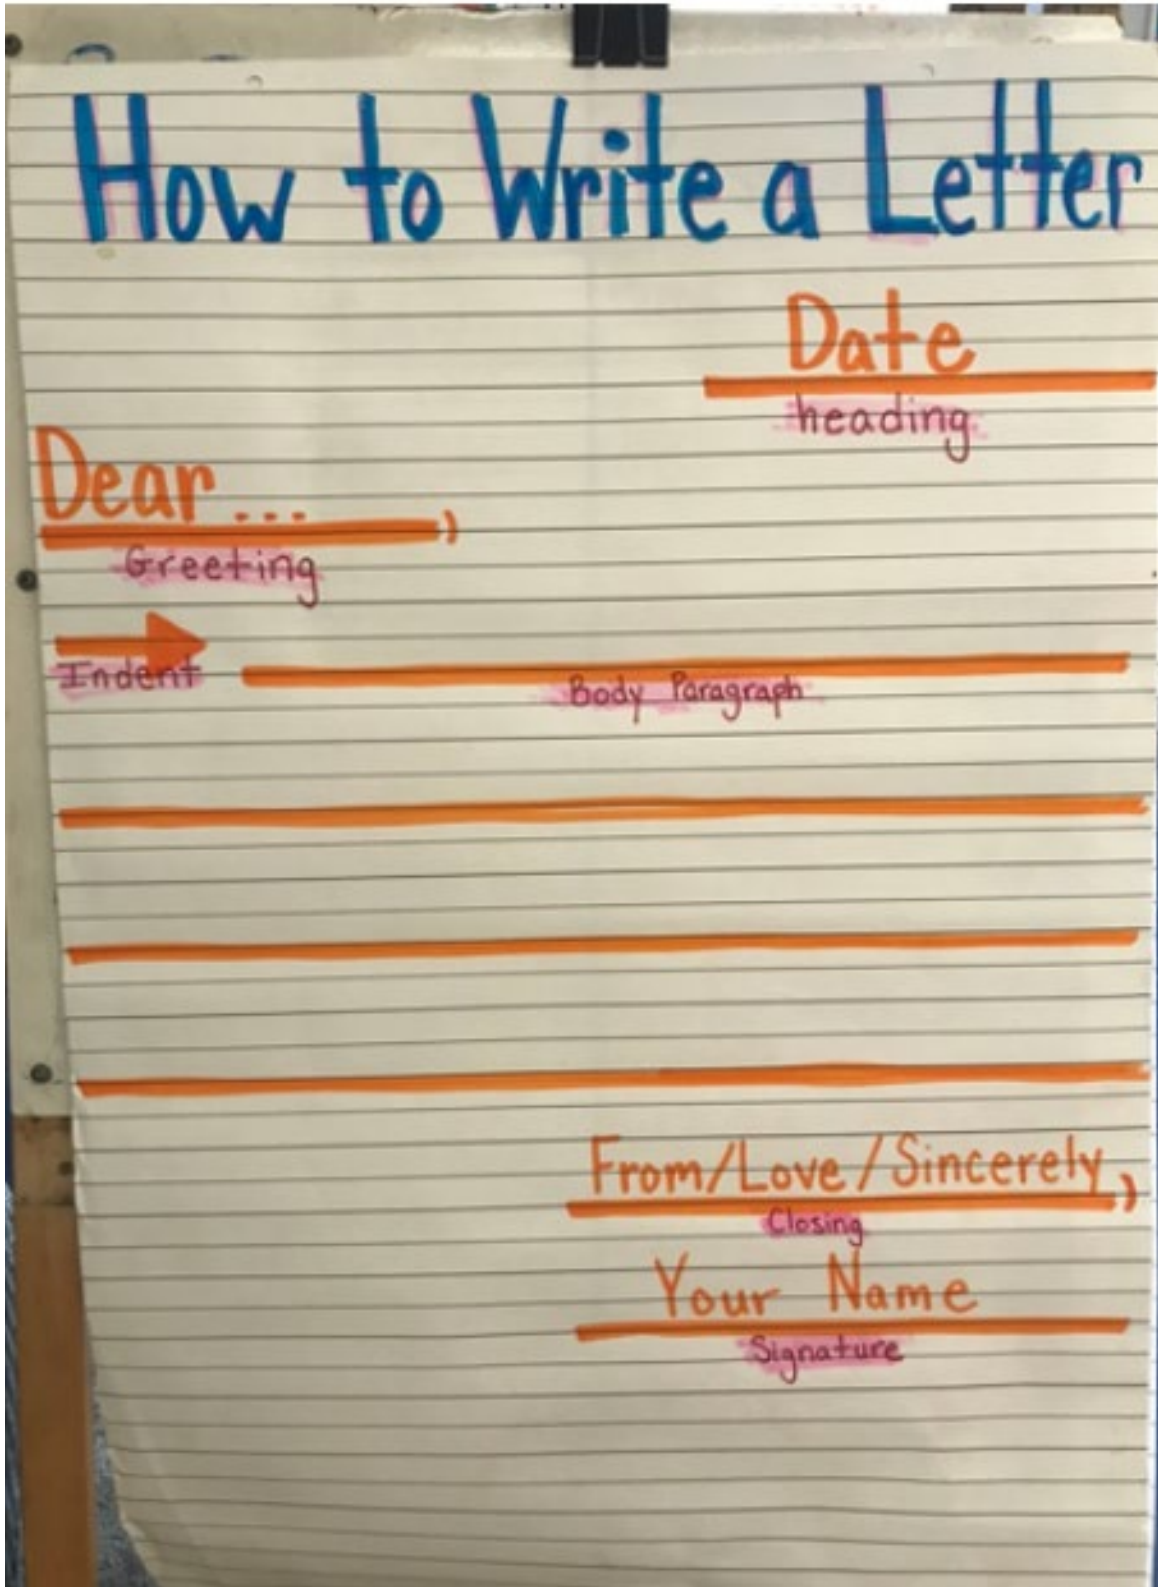 How to Write a Letter
Date
heading
Dear ... ,
Greeting
Indent
Body Paragraph
From/Love/Sincerely,
Closing
Your Name
Signature